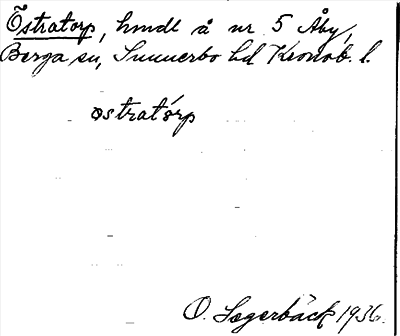 Östratorp, hmdl å nr 5 Åby,
Berga sn, Sunnerbo hd Kronob. l.
ostratórp
O. Lagerbäck 1936.